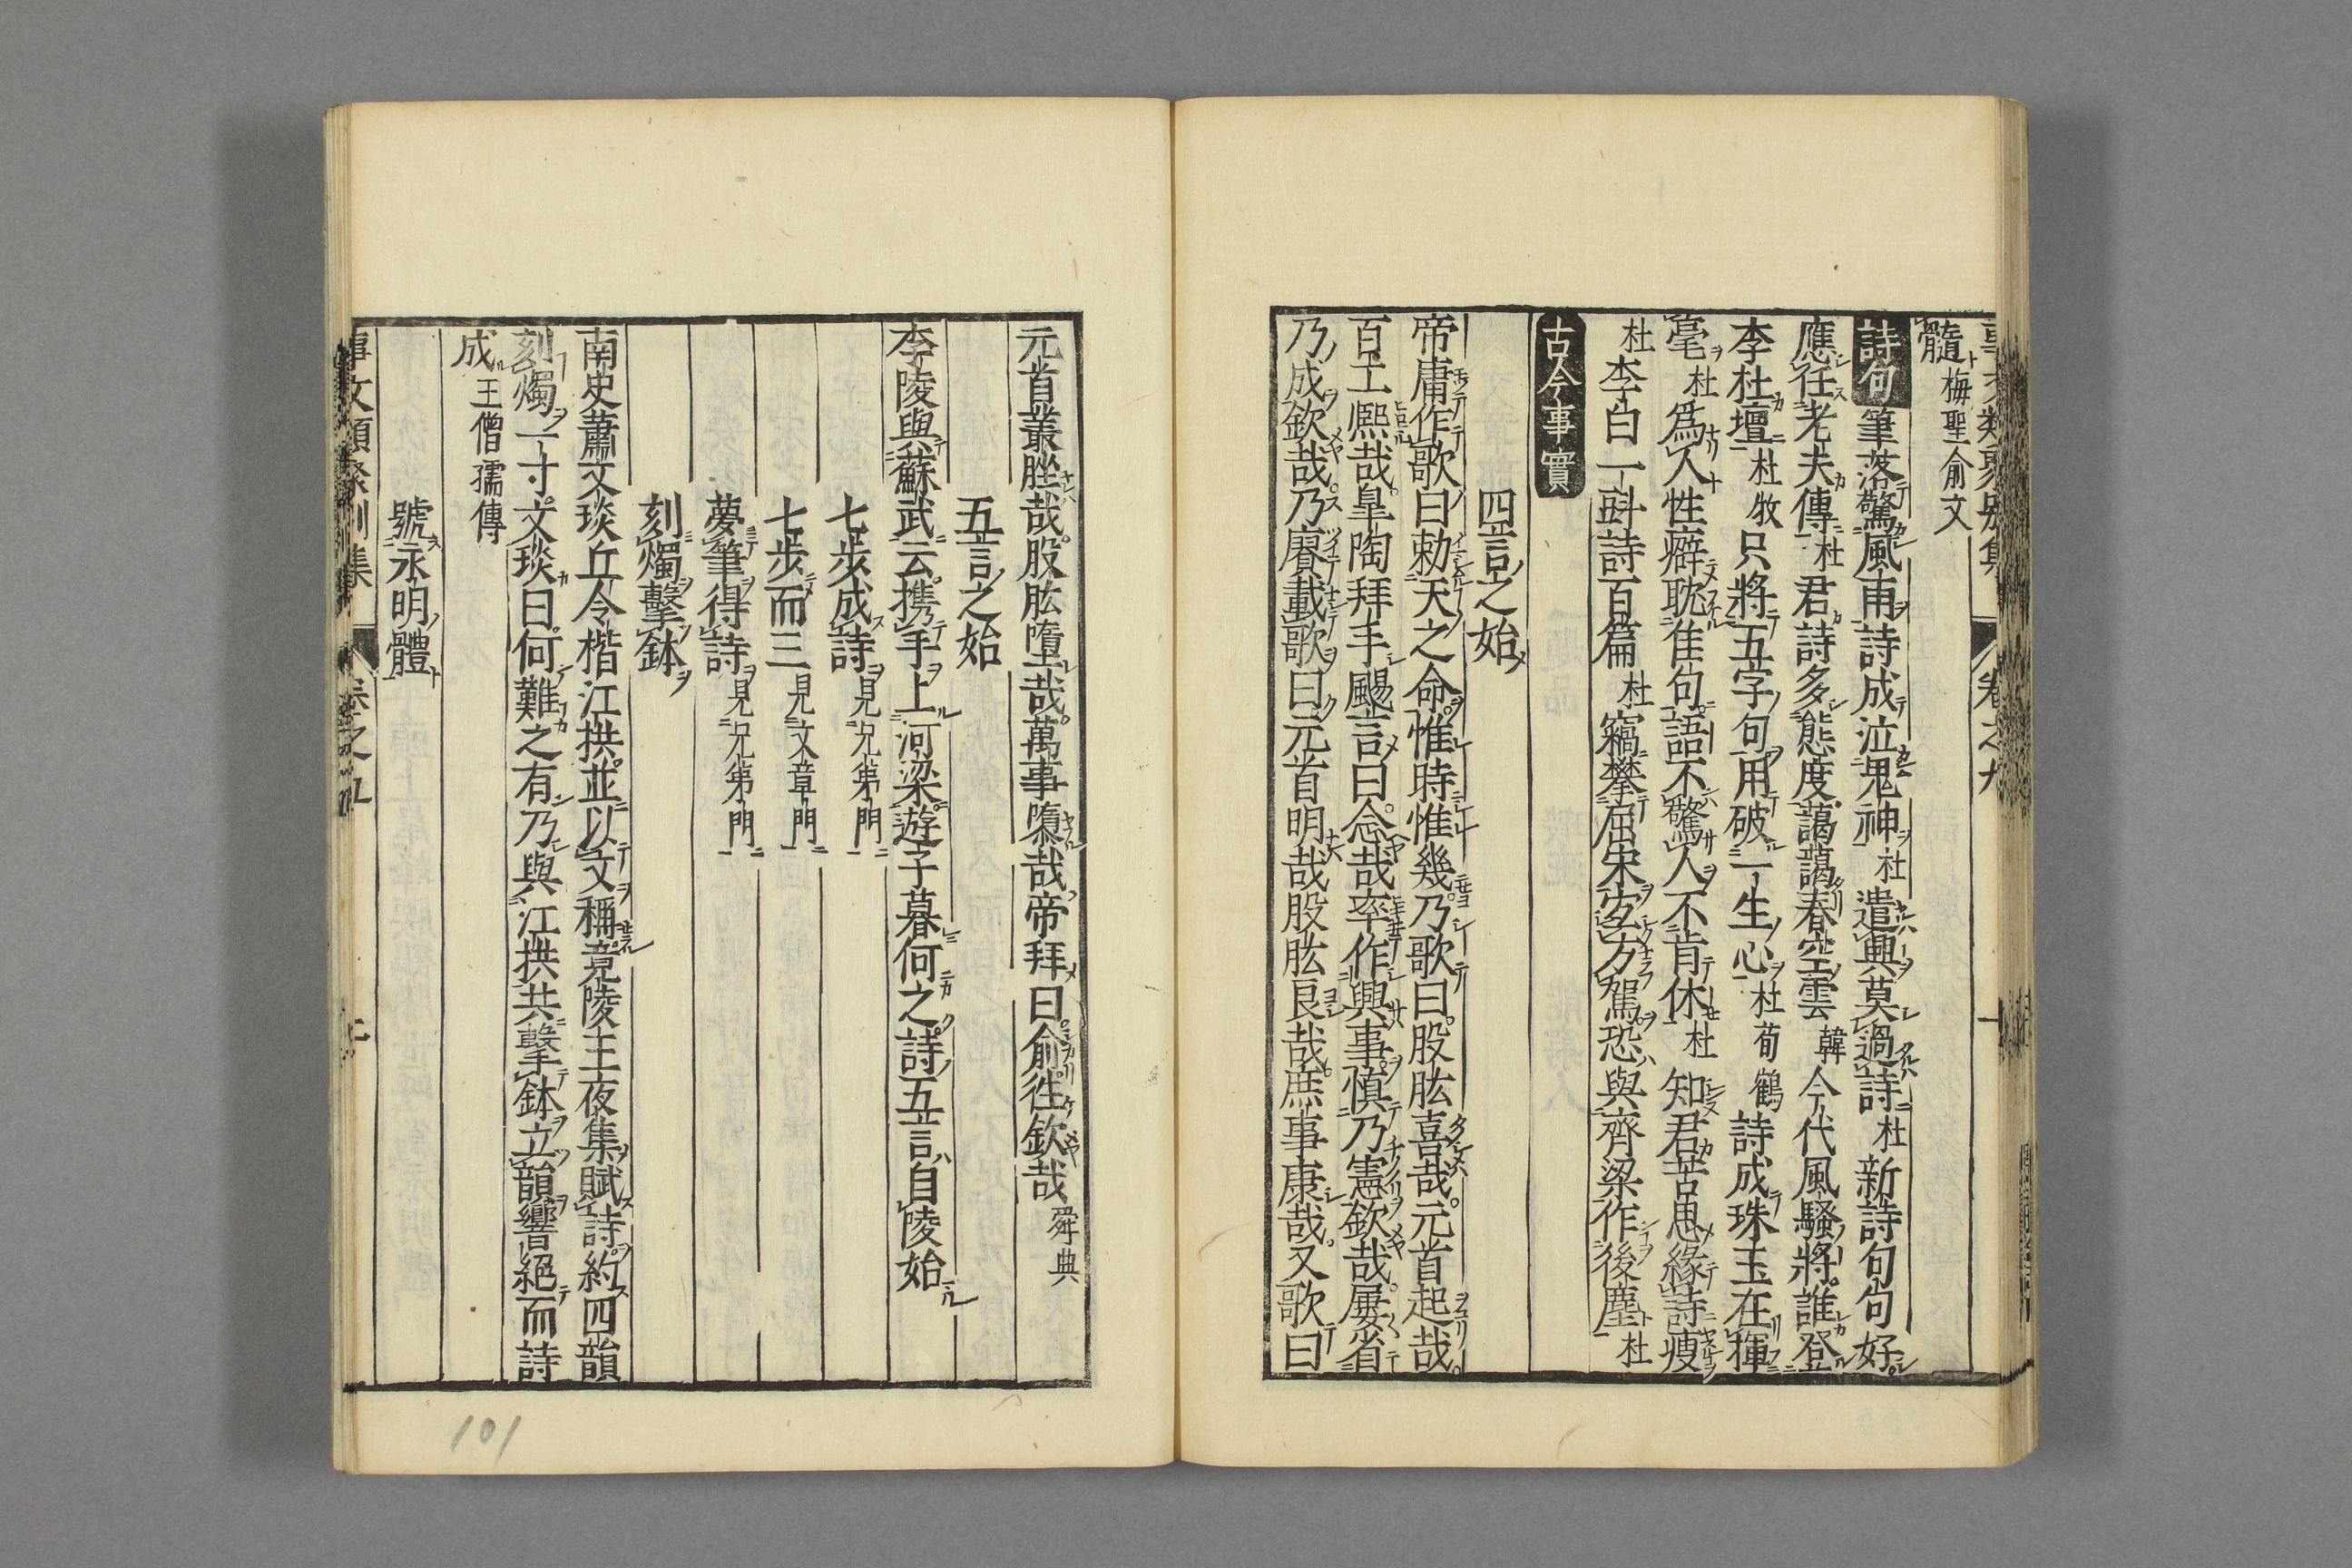 髓梅聖俞文
詩句筆落驚風雨詩成泣鬼神杜遣興莫過詩杜新詩句句好
應任老夫傳杜君詩多態度藹藹春空雲韓今代風騷將誰登
李杜壇杜牧只將五字句用破一生心杜荀鶴詩成珠玉在揮
毫杜為人性癖耽佳句語不驚人不肯休杜知君苦思緣詩瘦
杜李白一斗詩百篇杜竊攀屈宋宜方駕恐與齊梁作後塵杜
古今事實
四言之始
帝庸作歌曰勑天之命惟時惟幾乃歌曰股肱喜哉元首起哉
百工熈哉臯陶拜手颺言曰念哉率作興事慎乃憲欽哉屢省
乃成欽哉乃賡載歌曰元首明哉股肱良哉庶事康哉又歌曰
元首叢脞哉股肱墮哉萬事隳哉帝拜曰俞往欽哉舜典
五言之始
李陵與蘇武云携手上河梁遊子暮何之詩五言自陵始
七步成詩見兄弟門
七步而三見文章門
夢筆得詩見兄弟門
刻燭擊鉢
南史蕭文琰丘令楷江拱並以文稱竟陵王夜集賦詩約四韻
刻燭一寸文琰曰何難之有乃與江拱共擊鉢立韻響絕而詩
成王僧孺傳
號永明體
事文類聚別集 卷之九